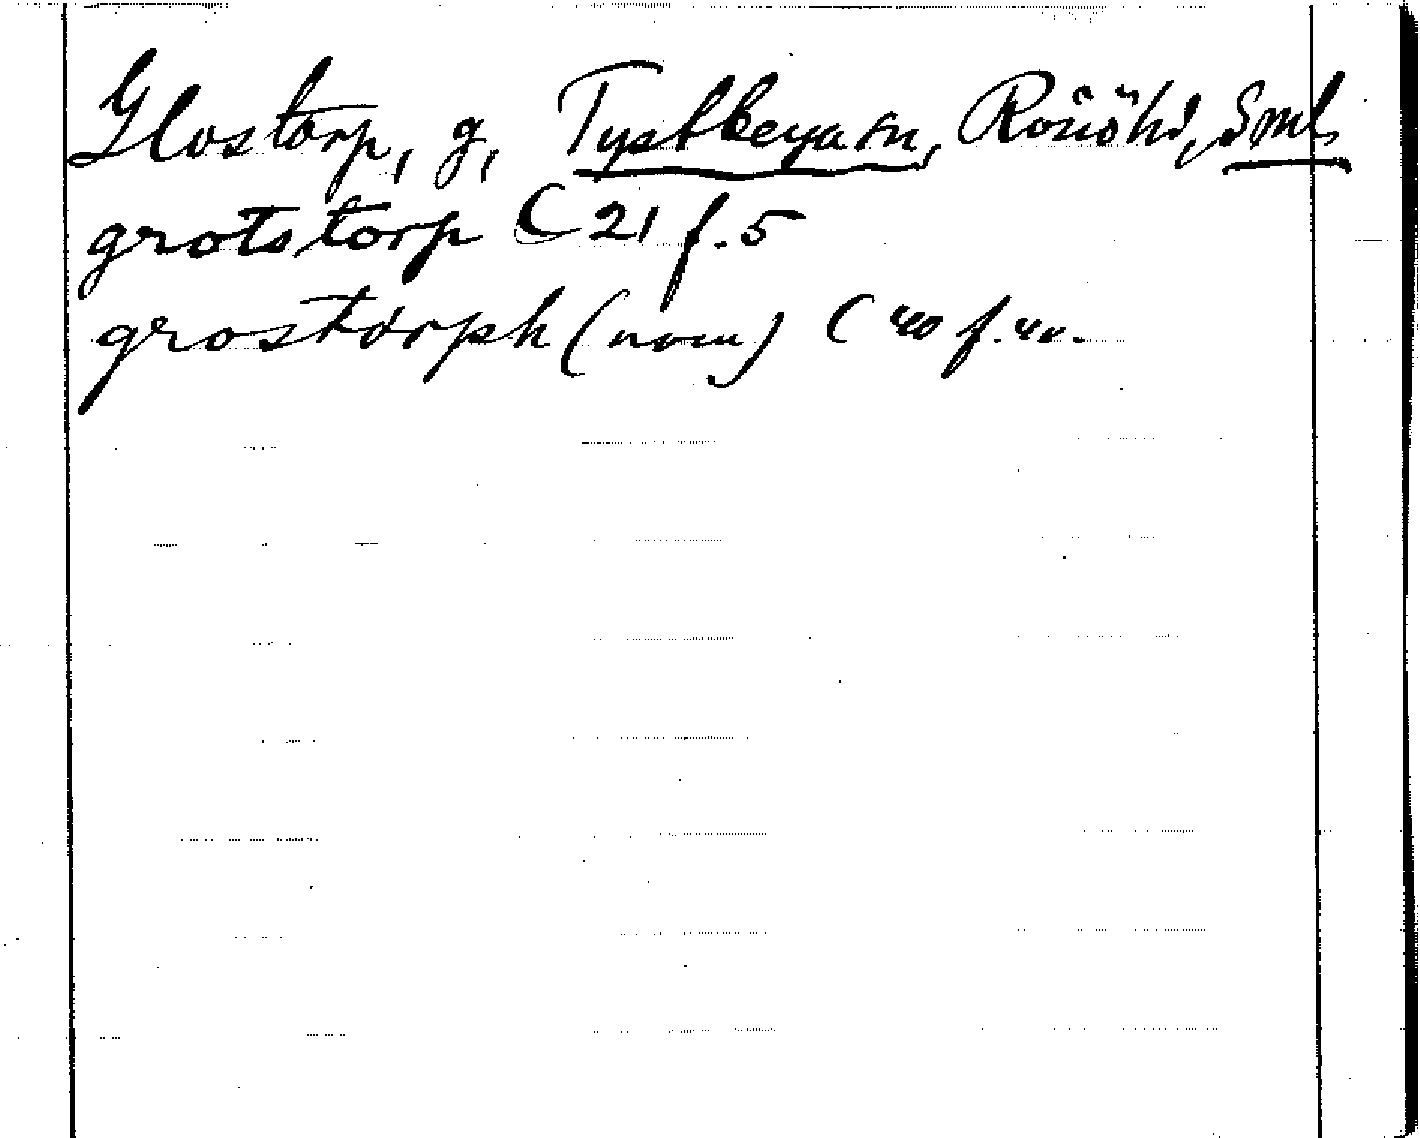 Glostorp, g, Tystbega sn, Rönöhd, Sml
grotstorp C 21 f. 5
grostorph (nom) C 40 f. 40.